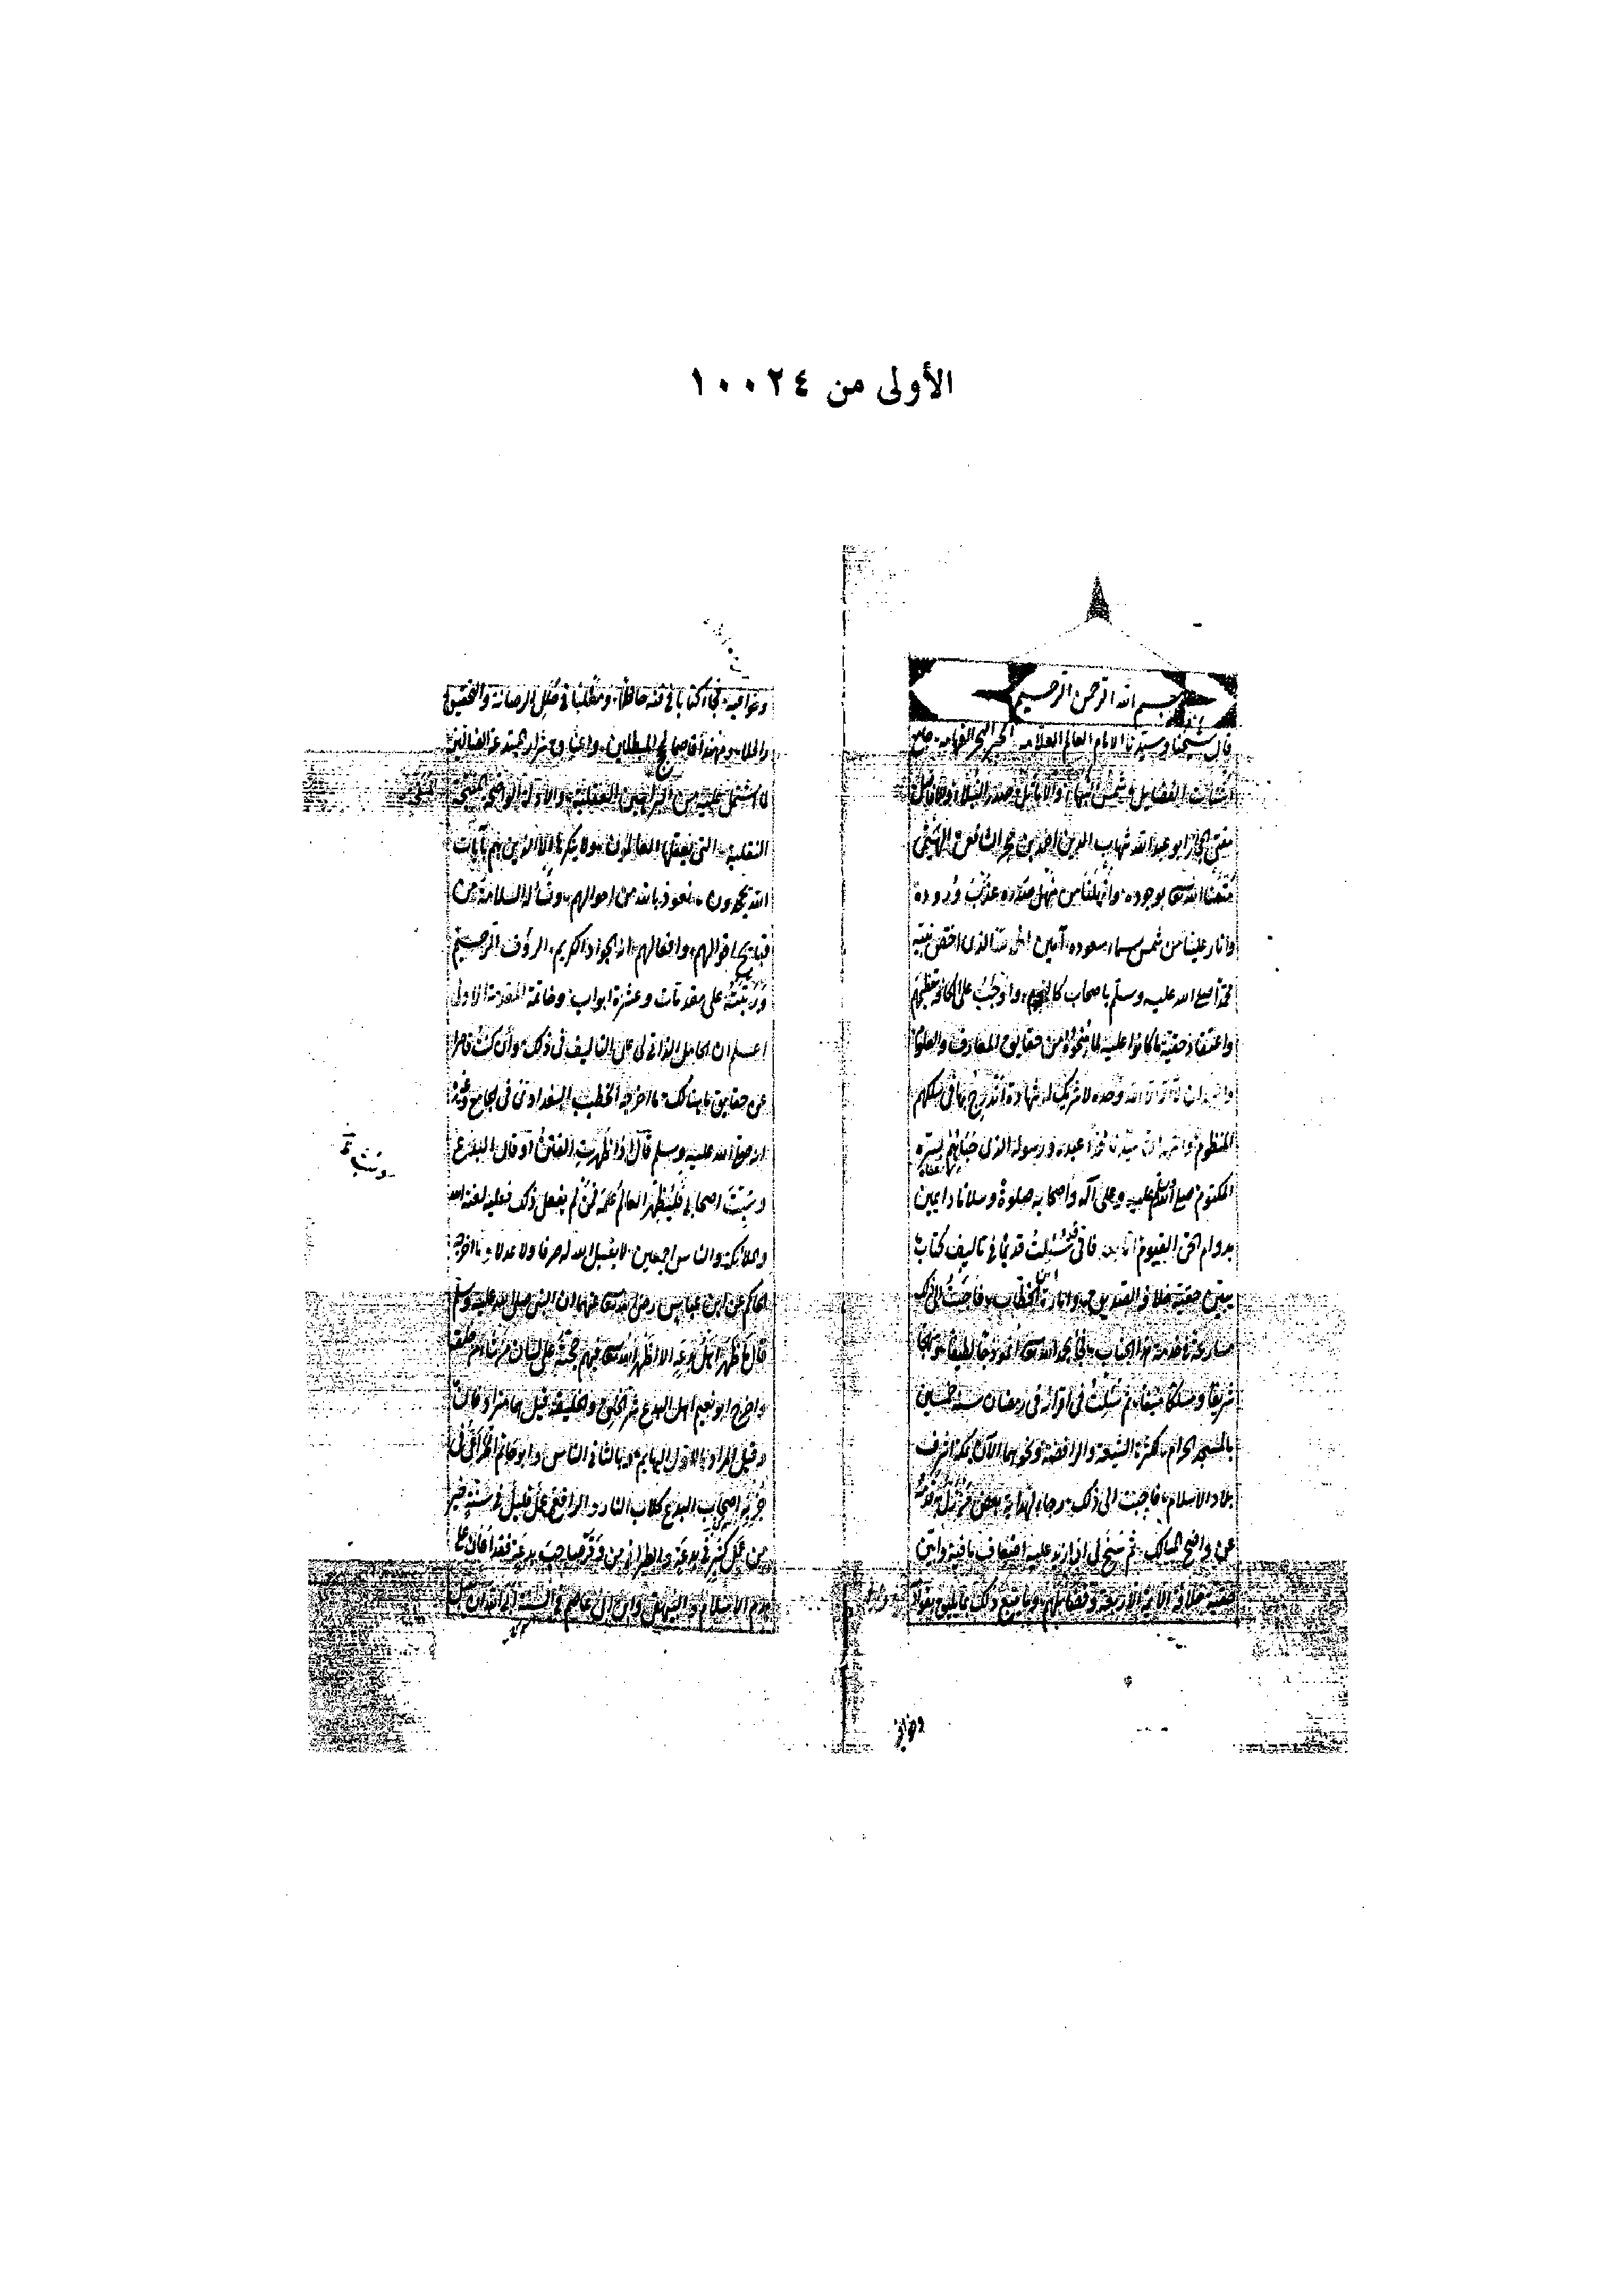 الأولى من ١٠٠٢٤
بسم الله الرحمن الرحيم
قال شيخنا وسيدنا الامام العالم العلامة الحبر البحر الفهامة جامع
اشتات الفضايل شمس البهاء والاماثل صدر النبلاء
مفتى الحجاز ابو عبد الله شهاب الدين احمد بن حجر الشافعى الهيثمى
متعنا الله تعالى بوجوده وانهلنا من منهل عذب وروده
وانار علينا من شمس سماء سعوده آمين الحمد لله الذى اختص نبيه
محمدا صلى الله عليه وسلم باصحاب كالنجوم واوجب على الكافة تعظيمهم
واعتقاد حقية ما كانوا عليه لما منحوه من حقايق المعارف والعلوم
واشهد ان لا اله الا الله وحده لا شريك له شهادة اندرج بها فى سلكهم
المنظوم واشهد ان سيدنا محمدا عبده ورسوله الذى حباهم بسره
المكتوم صلى الله وسلم عليه وعلى آله واصحابه صلوة وسلاما دايمين
بدوام الحى القيوم اما بعد فانى سئلت قديما فى تاليف كتاب
يبين حقية خلافة الصديق وامارة ابن الخطاب فاجبت الى ذلك
مسارعة فى خدمة هذا الجناب فجاء بحمد الله تعالى انموذجا لطيفا ومنهاجا
شريفا ومسلكا منيفا ثم سئلت فى اقرائه فى رمضان سنة خمسين
بالمسجد الحرام لكثرة الشيعة والرافضة ونحوهما الآن بمكة اشرف
بلاد الاسلام فاجبت الى ذلك رجاء لهداية بعض من زل به قدمه
عن واضح المسالك ثم سنح لى ان ازيد عليه اضعاف ما فيه وابين
حقية خلافة الايمة الاربعة وفضايلهم وما يتبع ذلك مما يليق بقوادمه
وخوافيه
وخوافيه فجاء كتابا فى فنه حافلا ومطلبا فى حلل الرصانة والتحقيق
رافلا ومهندا قاصما لحجج المبطلين واعناق المبتدعة الضالين
لما اشتمل عليه من البراهين العقلية والادلة الواضحة
النقلية التى يعقلها العالمون ولا ينكرها الا الذين هم بآيات
الله يجحدون نعوذ بالله من احوالهم ونسأله السلامة من
قبايح اقوالهم وافعالهم انه الجواد الكريم الرؤف الرحيم
ورتبته على مقدمات وعشرة ابواب وخاتمة المقدمة الاولى
اعلم ان الحامل الداعى لى على التاليف فى ذلك وان كنت قاصرا
عن حقايق ما هنالك ما اخرجه الخطيب البغدادى فى الجامع وغيره
انه صلى الله عليه وسلم قال اذا ظهرت الفتن او قال البدع
وسبت اصحابى فليظهر العالم علمه فمن لم يفعل ذلك فعليه لعنة الله
والملائكة والناس اجمعين لا يقبل الله له صرفا ولا عدلا وما اخرجه
الحاكم عن ابن عباس رضى الله تعالى عنهما ان النبى صلى الله عليه وسلم
قال ما ظهر اهل بدعة الا اظهر الله تعالى فيهم حجته على لسان من شاء من خلقه
واخرج ابو نعيم اهل البدع شر الخلق والخليقة قيل هما مترادفان
وقيل المراد بالاول البهايم وبالثانى الناس وابو حاتم الخزاعى فى
جزئه اصحاب البدع كلاب النار والرافعى عمل قليل فى سنة خير
من عمل كثير فى بدعة والطبرانى من وقر صاحب بدعة فقد اعان على
هدم الاسلام والبيهقى وابن ابى عاصم فى السنة ابى الله ان يقبل